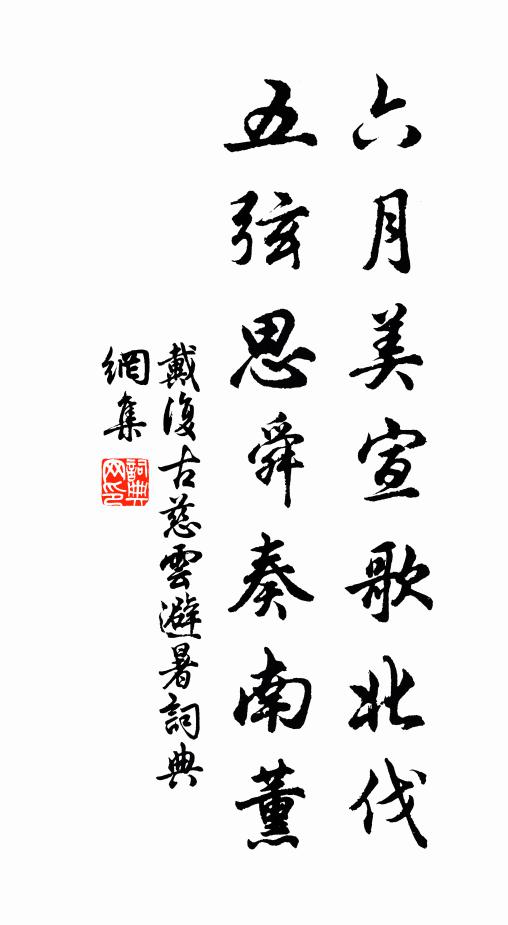 六月美宣歌北伐
五弦思舜奏南薰
戴復古慈雲避暑詞典
網集
詞典
网印